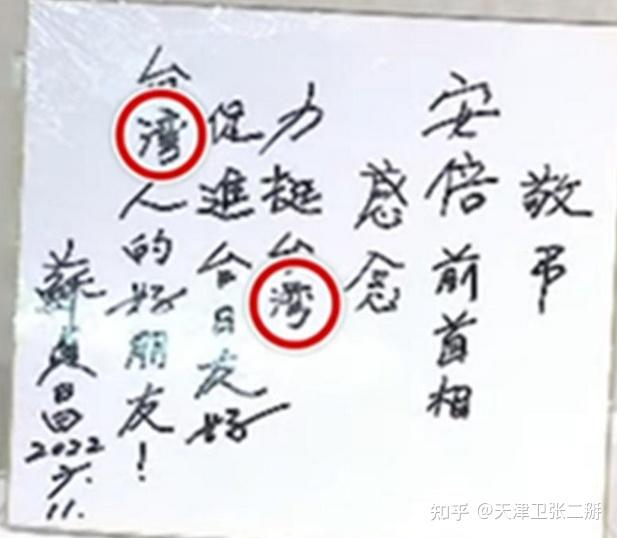 敬弔
安倍前首相
感念
力挺台湾
促進台日友好
台湾人的好朋友！
蘇貞昌
2022
7.
11.
知乎 @天津卫张二掰